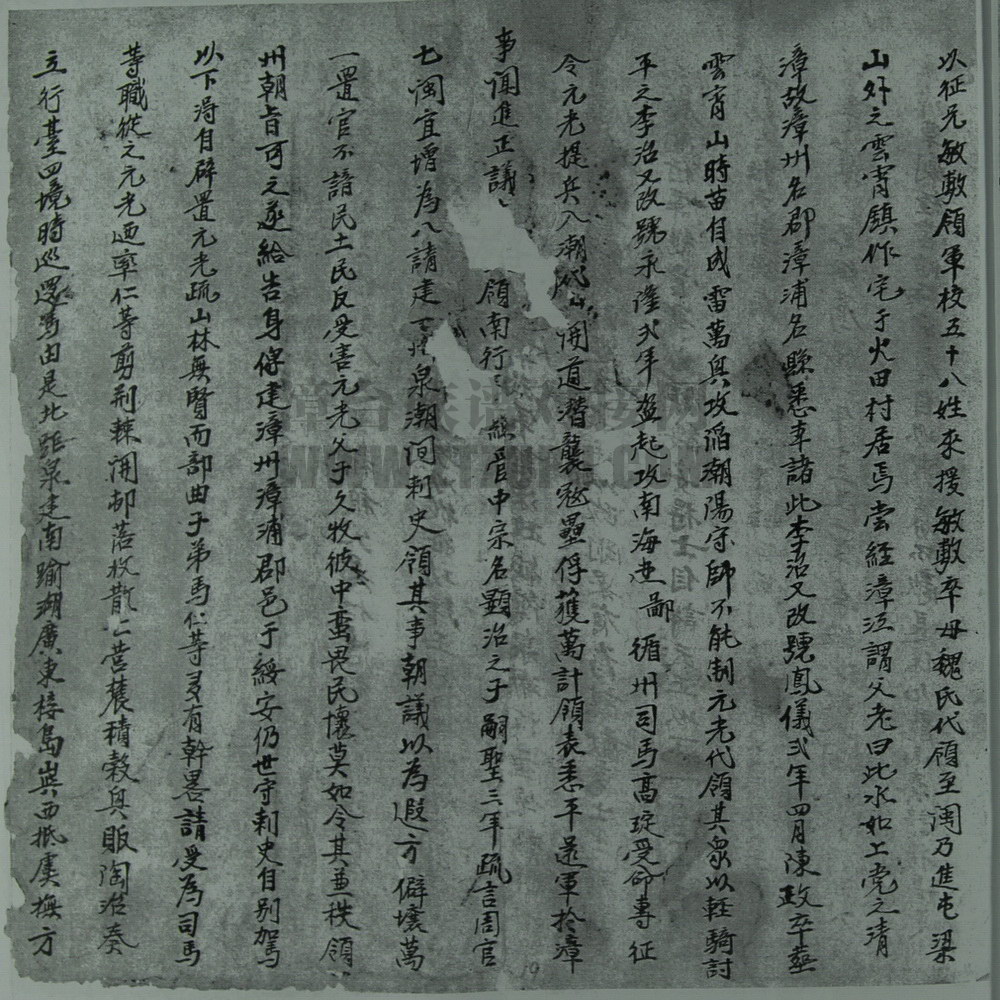 以征兄敏敷領軍校五十八姓來援敏敷卒母魏氏代領至閩乃進屯梁
山外之雲霄鎮作宅于火田村居焉嘗經漳江謂父老曰此水如上党之清
漳故漳州名郡漳浦名縣悉本諸此李治又改號鳳儀弍年四月陳政卒葬
雲霄山時苗自成雷萬興攻陷潮陽守帥不能制元光代領其衆以輕騎討
平之李治又改號永隆弍年盗起攻南海边鄙循州司馬高琔受命專征
令元光提兵入潮伐山開道潛襲寇壘俘獲萬計領表悉平還軍於漳
事聞進正議 領南行 總管中宗名顯治之子嗣聖三年疏言周官
七閩宜增為八請建 泉潮间刺史領其事朝議以為遐方僻壤萬
一置官不諳民土民反受害元光父子久牧彼中蛮畏民懷莫如令其兼秩領
州朝旨可之遂給告身俾建漳州漳浦郡邑于綏安仍世守刺史自别駕
以下得自辟置元光疏山林無賢而部曲子弟馬仁等多有幹畧請受為司馬
等職從之元光廼率仁等剪荆棘開邨落收散亡营農積穀興販陶冶奏
立行臺四境時巡邏焉由是北距泉建南踰潮廣東接島嶼西抵虔撫方
19
WWW.ZTZUPU.COM